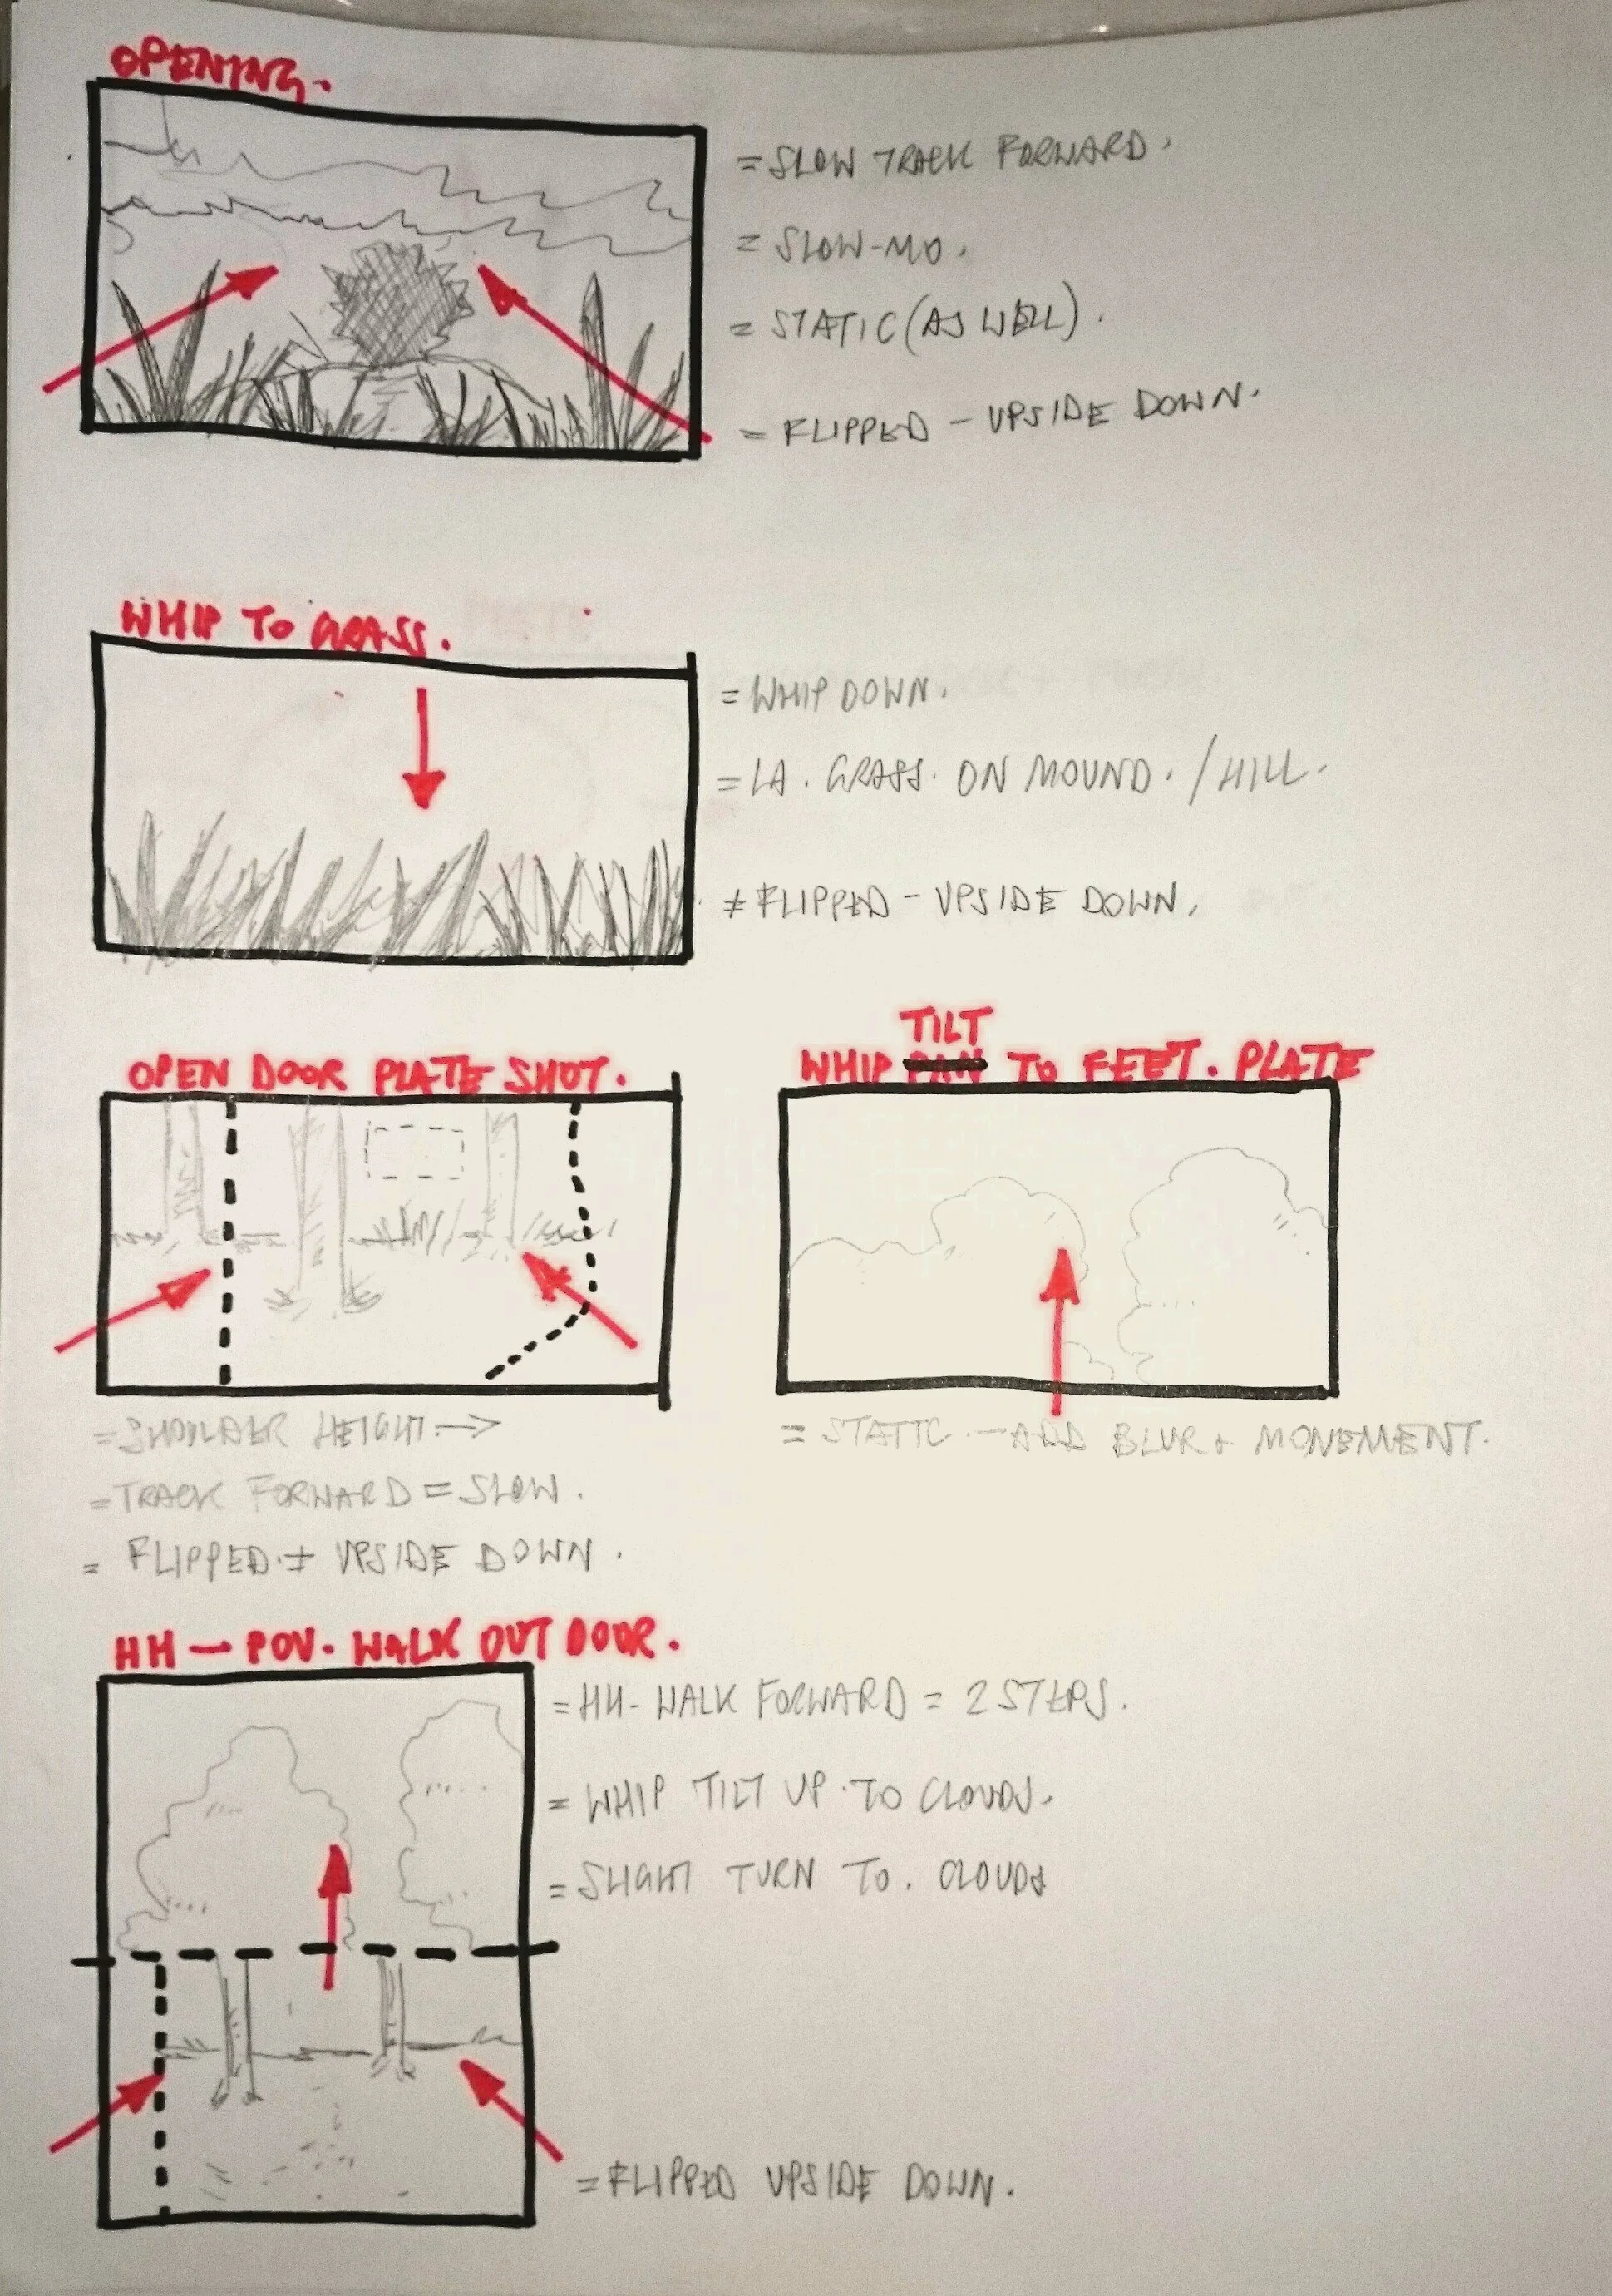 OPENING.
= SLOW TRACK FORWARD.
= SLOW-MO.
= STATIC (AS WELL).
= FLIPPED - UPSIDE DOWN.
WHIP TO GRASS.
= WHIP DOWN.
= LA. GRASS. ON MOUND. / HILL.
≠ FLIPPED - UPSIDE DOWN.
OPEN DOOR PLATE SHOT.
= SHOULDER HEIGHT. →
= TRACK FORWARD = SLOW.
= FLIPPED. + UPSIDE DOWN.
TILT
WHIP PAN TO FEET. PLATE
= STATIC. - ADD BLUR + MONEMENT.
HH - POV. WALK OUT DOOR.
= HH- WALK FORWARD = 2 STEPS.
= WHIP TILT UP. TO CLOUDS.
= SLIGHT TURN TO. CLOUDS
= FLIPPED UPSIDE DOWN.